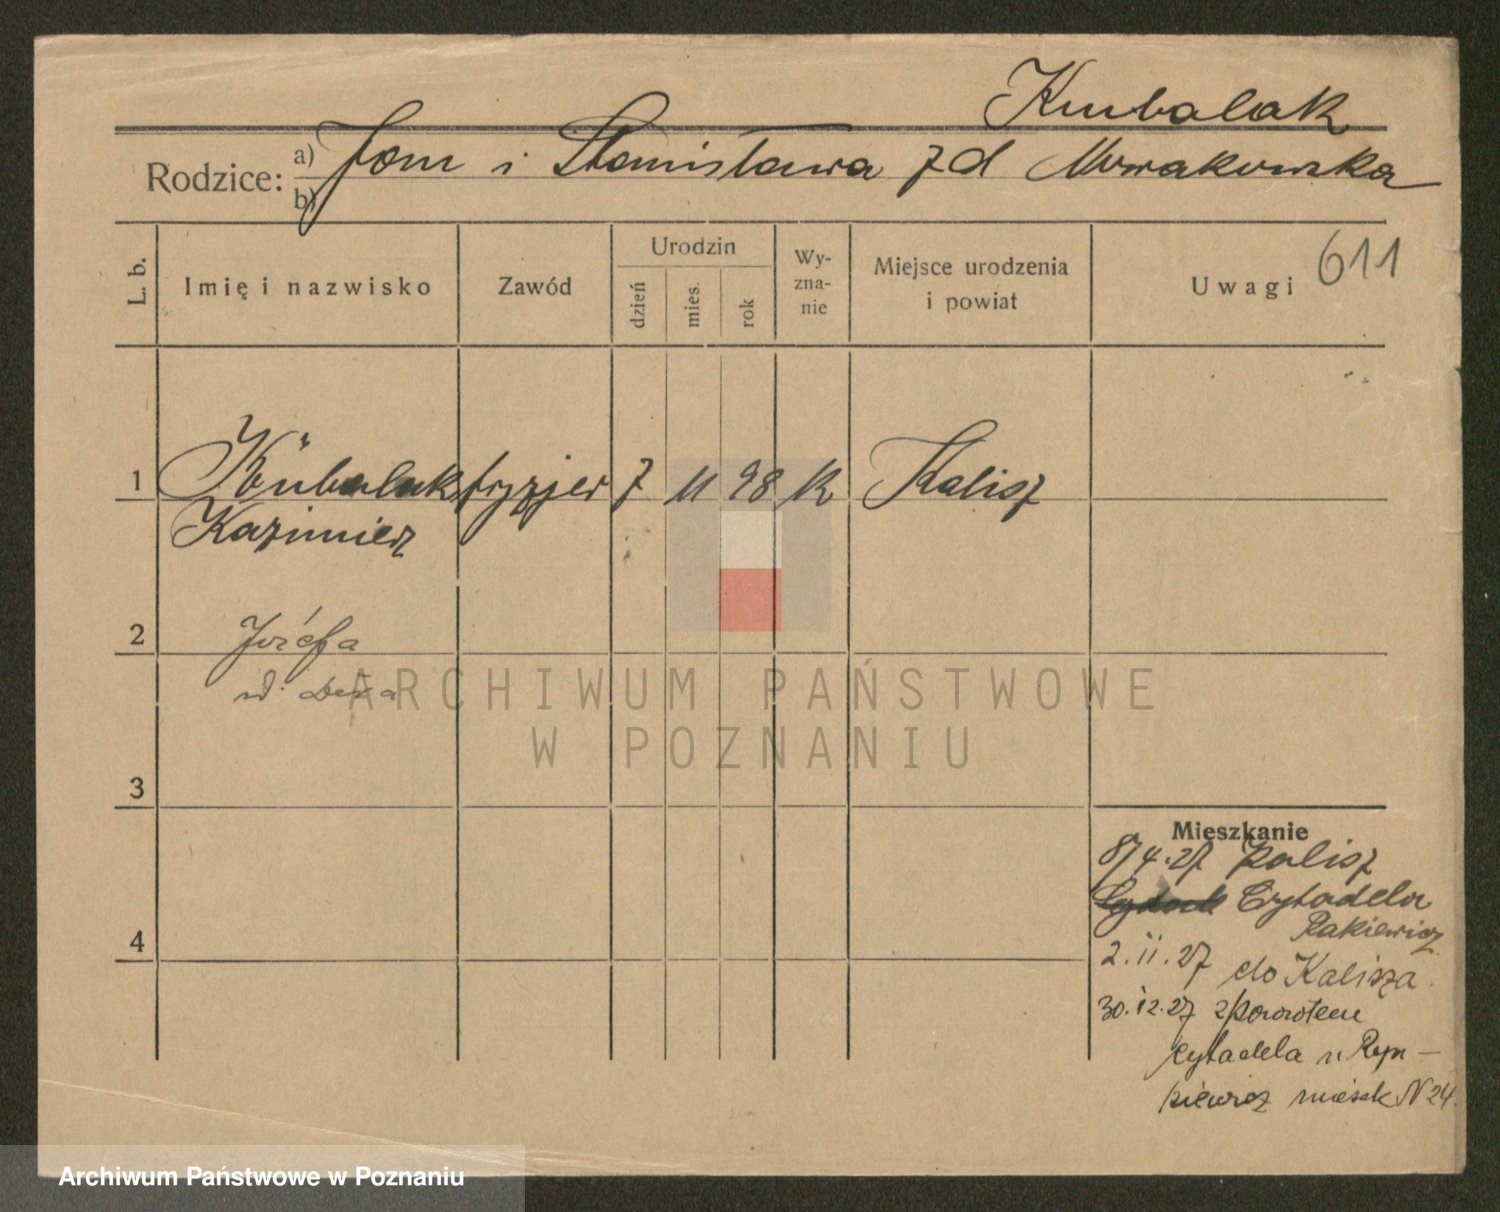 Kubalak
Rodzice: a) Jan i Stanisława z d Nowakowska
b)
L. b.
Imię i nazwisko
Zawód
Urodzin
dzień
mies.
rok
Wy-
zna-
nie
Miejsce urodzenia
i powiat
Uwagi 611
1 Kubalak fryzjer 7 11 98 R Kalisz
Kazimierz
2 Józefa
ARCHIWUM PAŃSTWOWE
W POZNANIU
3
4
Mieszkanie
8/4.27 Kalisz
Cytadela
2.11.27 do Kalisza.
30.12.27 z powrotem
cytadela u
mieszk N 24.
Archiwum Państwowe w Poznaniu